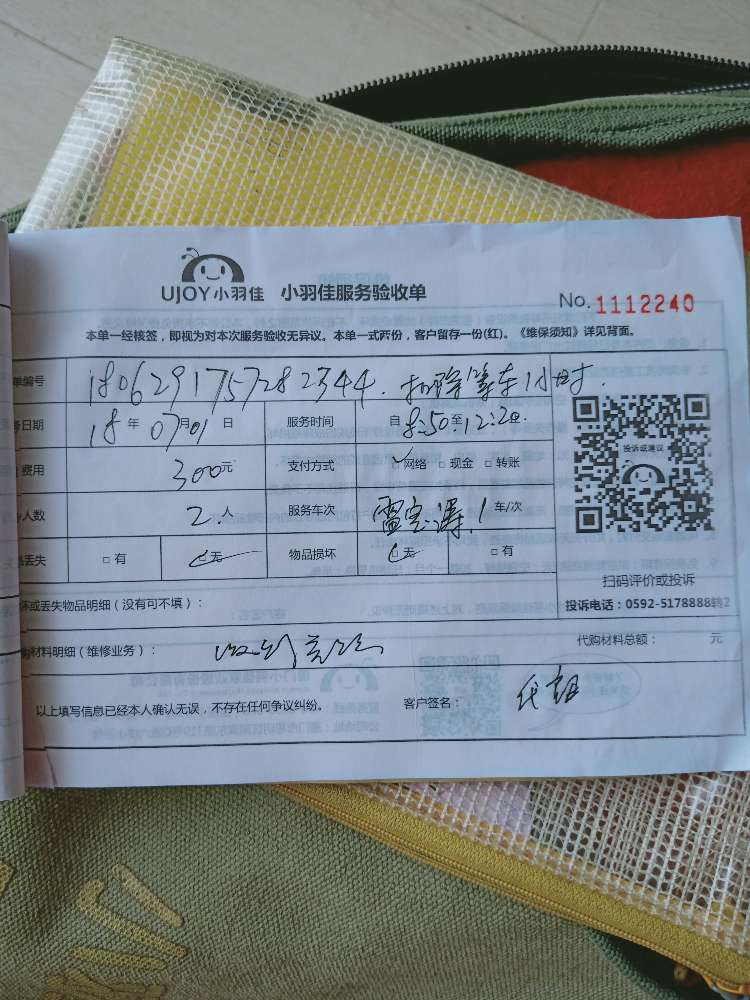 UJOY小羽佳 小羽佳服务验收单
No. 1112240
本单一经核签，即视为对本次服务验收无异议。本单一式两份，客户留存一份(红)。《维保须知》详见背面。
单编号 180629175728 2344. 扣除等车1小时.
务日期 18 年 07 月 01 日 服务时间 自 8:50 至 12:20
费用 300 元 支付方式 ☑网络 □现金 □转账
人数 2. 人 服务车次 1 车/次
丢失 □有 ☑无 物品损坏 ☑无 □有
投诉或建议
扫码评价或投诉
投诉电话：0592-5178888转2
坏或丢失物品明细（没有可不填）：
购材料明细（维修业务）： 代购材料总额： 元
以上填写信息已经本人确认无误，不存在任何争议纠纷。 客户签名：